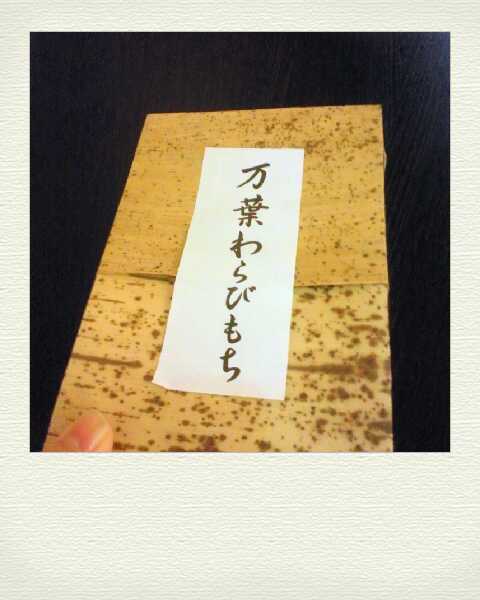 万葉わらびもち